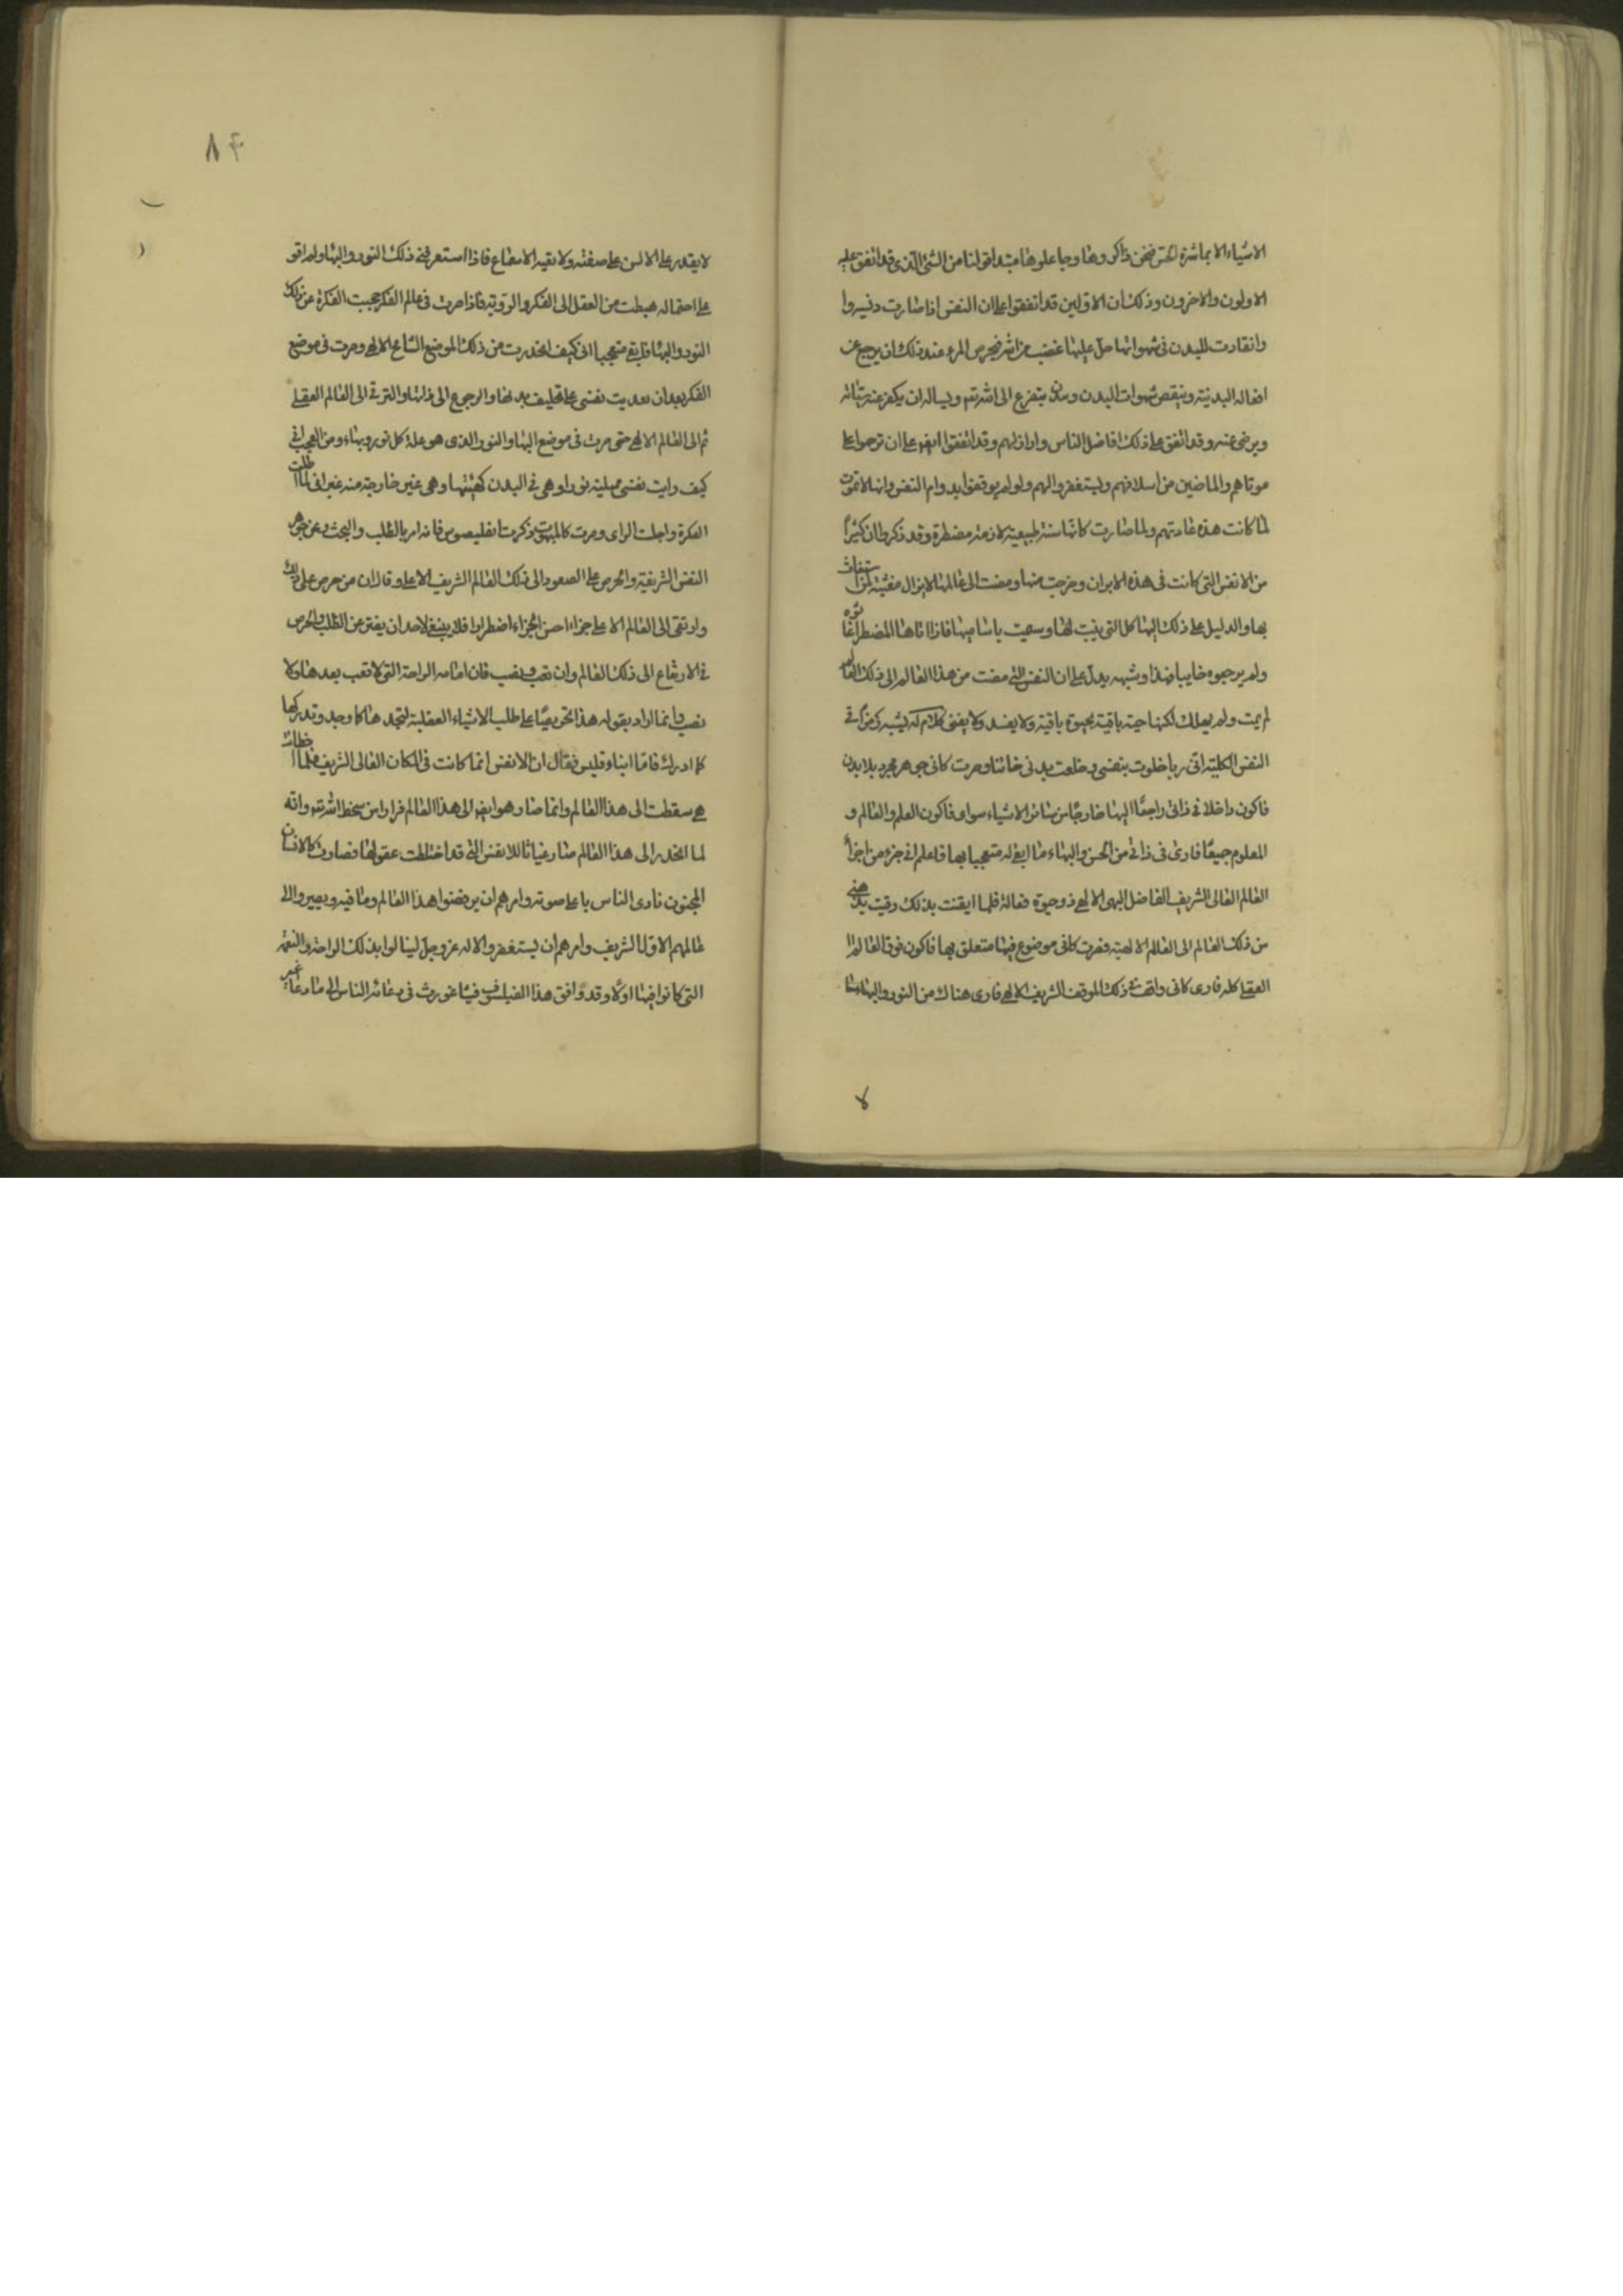 الاشياء الا بمباشرة الحس فنحن ذاكروها وجاعلوها مبتدا قولنا من الشئ الذى قد اتفق عليه
الاولون والاخرون وذلك ان الاولين قد اتفقوا على ان النفس اذا صارت دنسة وا
وانقادت للبدن فى شهواتها حل عليها غضب من الله فيحرص المرء عند ذلك ان يرجع عن
افعاله البدنية وينقص شهوات البدن و يتضرع الى الله ويساله ان يكفر عنه سيئاته
ويرضى عنه وقد اتفق على ذلك افاضل الناس واراذلهم وقد اتفقوا ايضا على ان ترحموا على
موتاهم والماضين من اسلافهم ويستغفروا لهم ولو لم يوقنوا بدوام النفس وانها لا تموت
لما كانت هذه عادتهم ولما صارت كانها سنة طبيعية لازمة مضطرة وقد ذكروا ان كثيرا
من الانفس التى كانت فى هذه الابدان وخرجت منها ومضت الى عالمها لا يزال مغيثة لمن استغاث
بها والدليل على ذلك الهياكل التى بنيت لها وسميت باسامیها فاذا اتاها المضطر اغاثوه
ولم يرجعوه خايبا فهذا وشبهه يدل على ان النفس التى مضت من هذا العالم الى ذلك العالم
لم يمت ولم يهلك لكنها حية باقية بحيوة باقية ولا يفسد ولا يفنى كلام له يشبه رمزا فى
النفس الكلية انى ربما خلوت بنفسى وخلعت بدنى جانبا وصرت كانى جوهر مجرد بلا بدن
فاكون داخلا فى ذاتى راجعا اليها خارجا من سائر الاشياء سواى فاكون العلم والعالم و
المعلوم جميعا فارى فى ذاتى من الحسن والبهاء ما ابقى له متعجبا بها فاعلم انى جزء من اجزاء
العالم العالى الشريف الفاضل البهى الالهى ذو حيوة فعالة فلما ايقنت بذلك رقيت بذهنى
من ذلك العالم الى العالم الالهية فصرت كانى موضوع فيها متعلق بها فاكون فوق العالم
العقلى كله فارى كانى واقف فى ذلك الموقف الشريف الالهى فارى هناك من النور والبهاء ما
لا
٨٤
لا يقدر على الالسن على صفته ولا تقيه الاسماع فاذا استغرقنى ذلك النور والبهاء ولم اقو
على احتماله هبطت من العقل الى الفكر والروية فاذا صرت فى عالم الفكر حجبت الفكرة عنى ذلك
النور والبهاء فابقى متعجبا انى كيف انحدرت من ذلك الموضع الشامخ الالهى وصرت فى موضع
الفكر بعد ان نفسى على تخليف بدنها والرجوع الى ذاتها والترقى الى العالم العقلى
ثم الى العالم الالهى حتى صرت فى موضع البهاء والنور الذى هو علة كل نور وبهاء ومن العجب انى
كيف رايت نفسى ممتلية نورا وهى فى البدن كهيئتها وهى غير خارجة منه غير انى لما اطلت
الفكرة واجلت الراى وصرت كالمبهوت ذكرت انقليصوس فانه امر بالطلب والبحث عن جوهر
النفس الشريفة والحرص على الصعود الى ذلك العالم الشريف الاعلى وقال ان من حرص على ذلك
وارتقى الى العالم الاعلى جزاءا احسن الجزاء اضطرارا فلا ينبغى لاحد ان يفتر عن الطلب والحرص
فى الارتفاع الى ذلك العالم وان تعب ونصب فان امامه الراحة التى لا تعب بعدها ولا
نصب وانما اراد بقوله هذا تحريصا على طلب الاشياء العقلية لنجدها كما وجد وندركها
كما ادرك فاما انبادقليس فقال ان الانفس انما كانت فى المكان العالى الشريف فلما اخطات
هى سقطت الى هذا العالم وانما صار هو ايضا الى هذا العالم فرارا من سخط الله وانه
لما انحدر الى هذا العالم صار غياثا للانفس التى قد اختلطت عقولها فصارت كالانسان
المجنون نادى الناس باعلى صوته وامرهم ان يرفضوا هذا العالم وما فيه ويصيروا الى
عالمهم الاول الشريف وامرهم ان يستغفروا الاله عز وجل لينالوا بذلك الراحة والنعمة
التى كانوا فيها اولا وقد وافق هذا الفيلسوف فيثاغورث فى دعائه الناس الى ما دعا غير